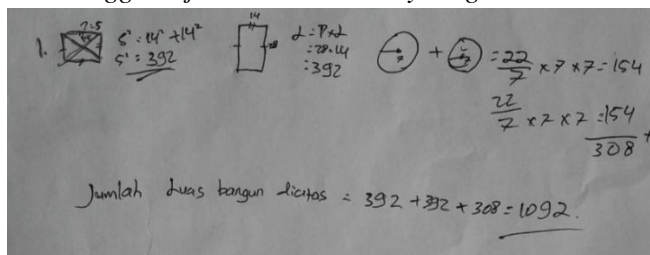 1.
S² = 14² + 14²
S² = 392
14
28
L = P x L
= 28 . 14
= 392
7
+
7
= 22/7 x 7 x 7 = 154
22/7 x 7 x 7 = 154
308 +
Jumlah Luas bangun diatas = 392 + 392 + 308 = 1092.